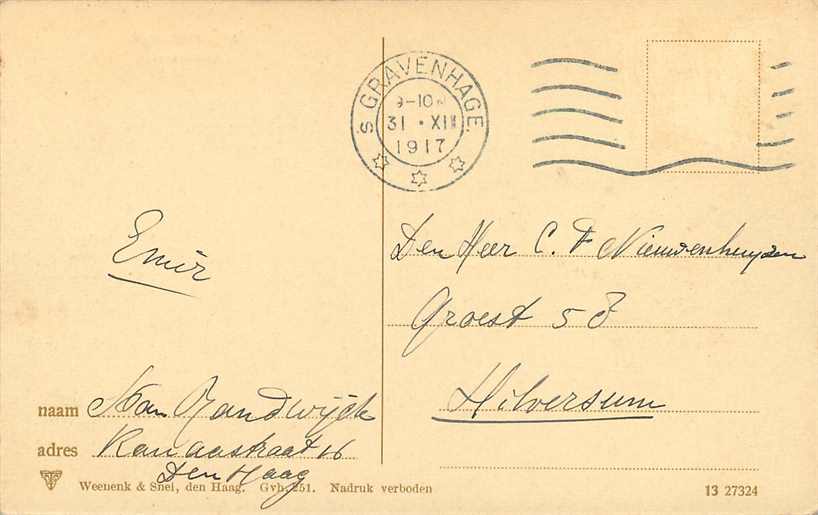 's GRAVENHAGE.
9-10
31 • XII
1917
Den Heer C. F Nieuwenhuyzen
Groest 58
Hilversum
naam van Randwijck
adres Kanaalstraat 16
Den Haag
Weenenk & Snel, den Haag. Gvh. 251. Nadruk verboden
13 27324